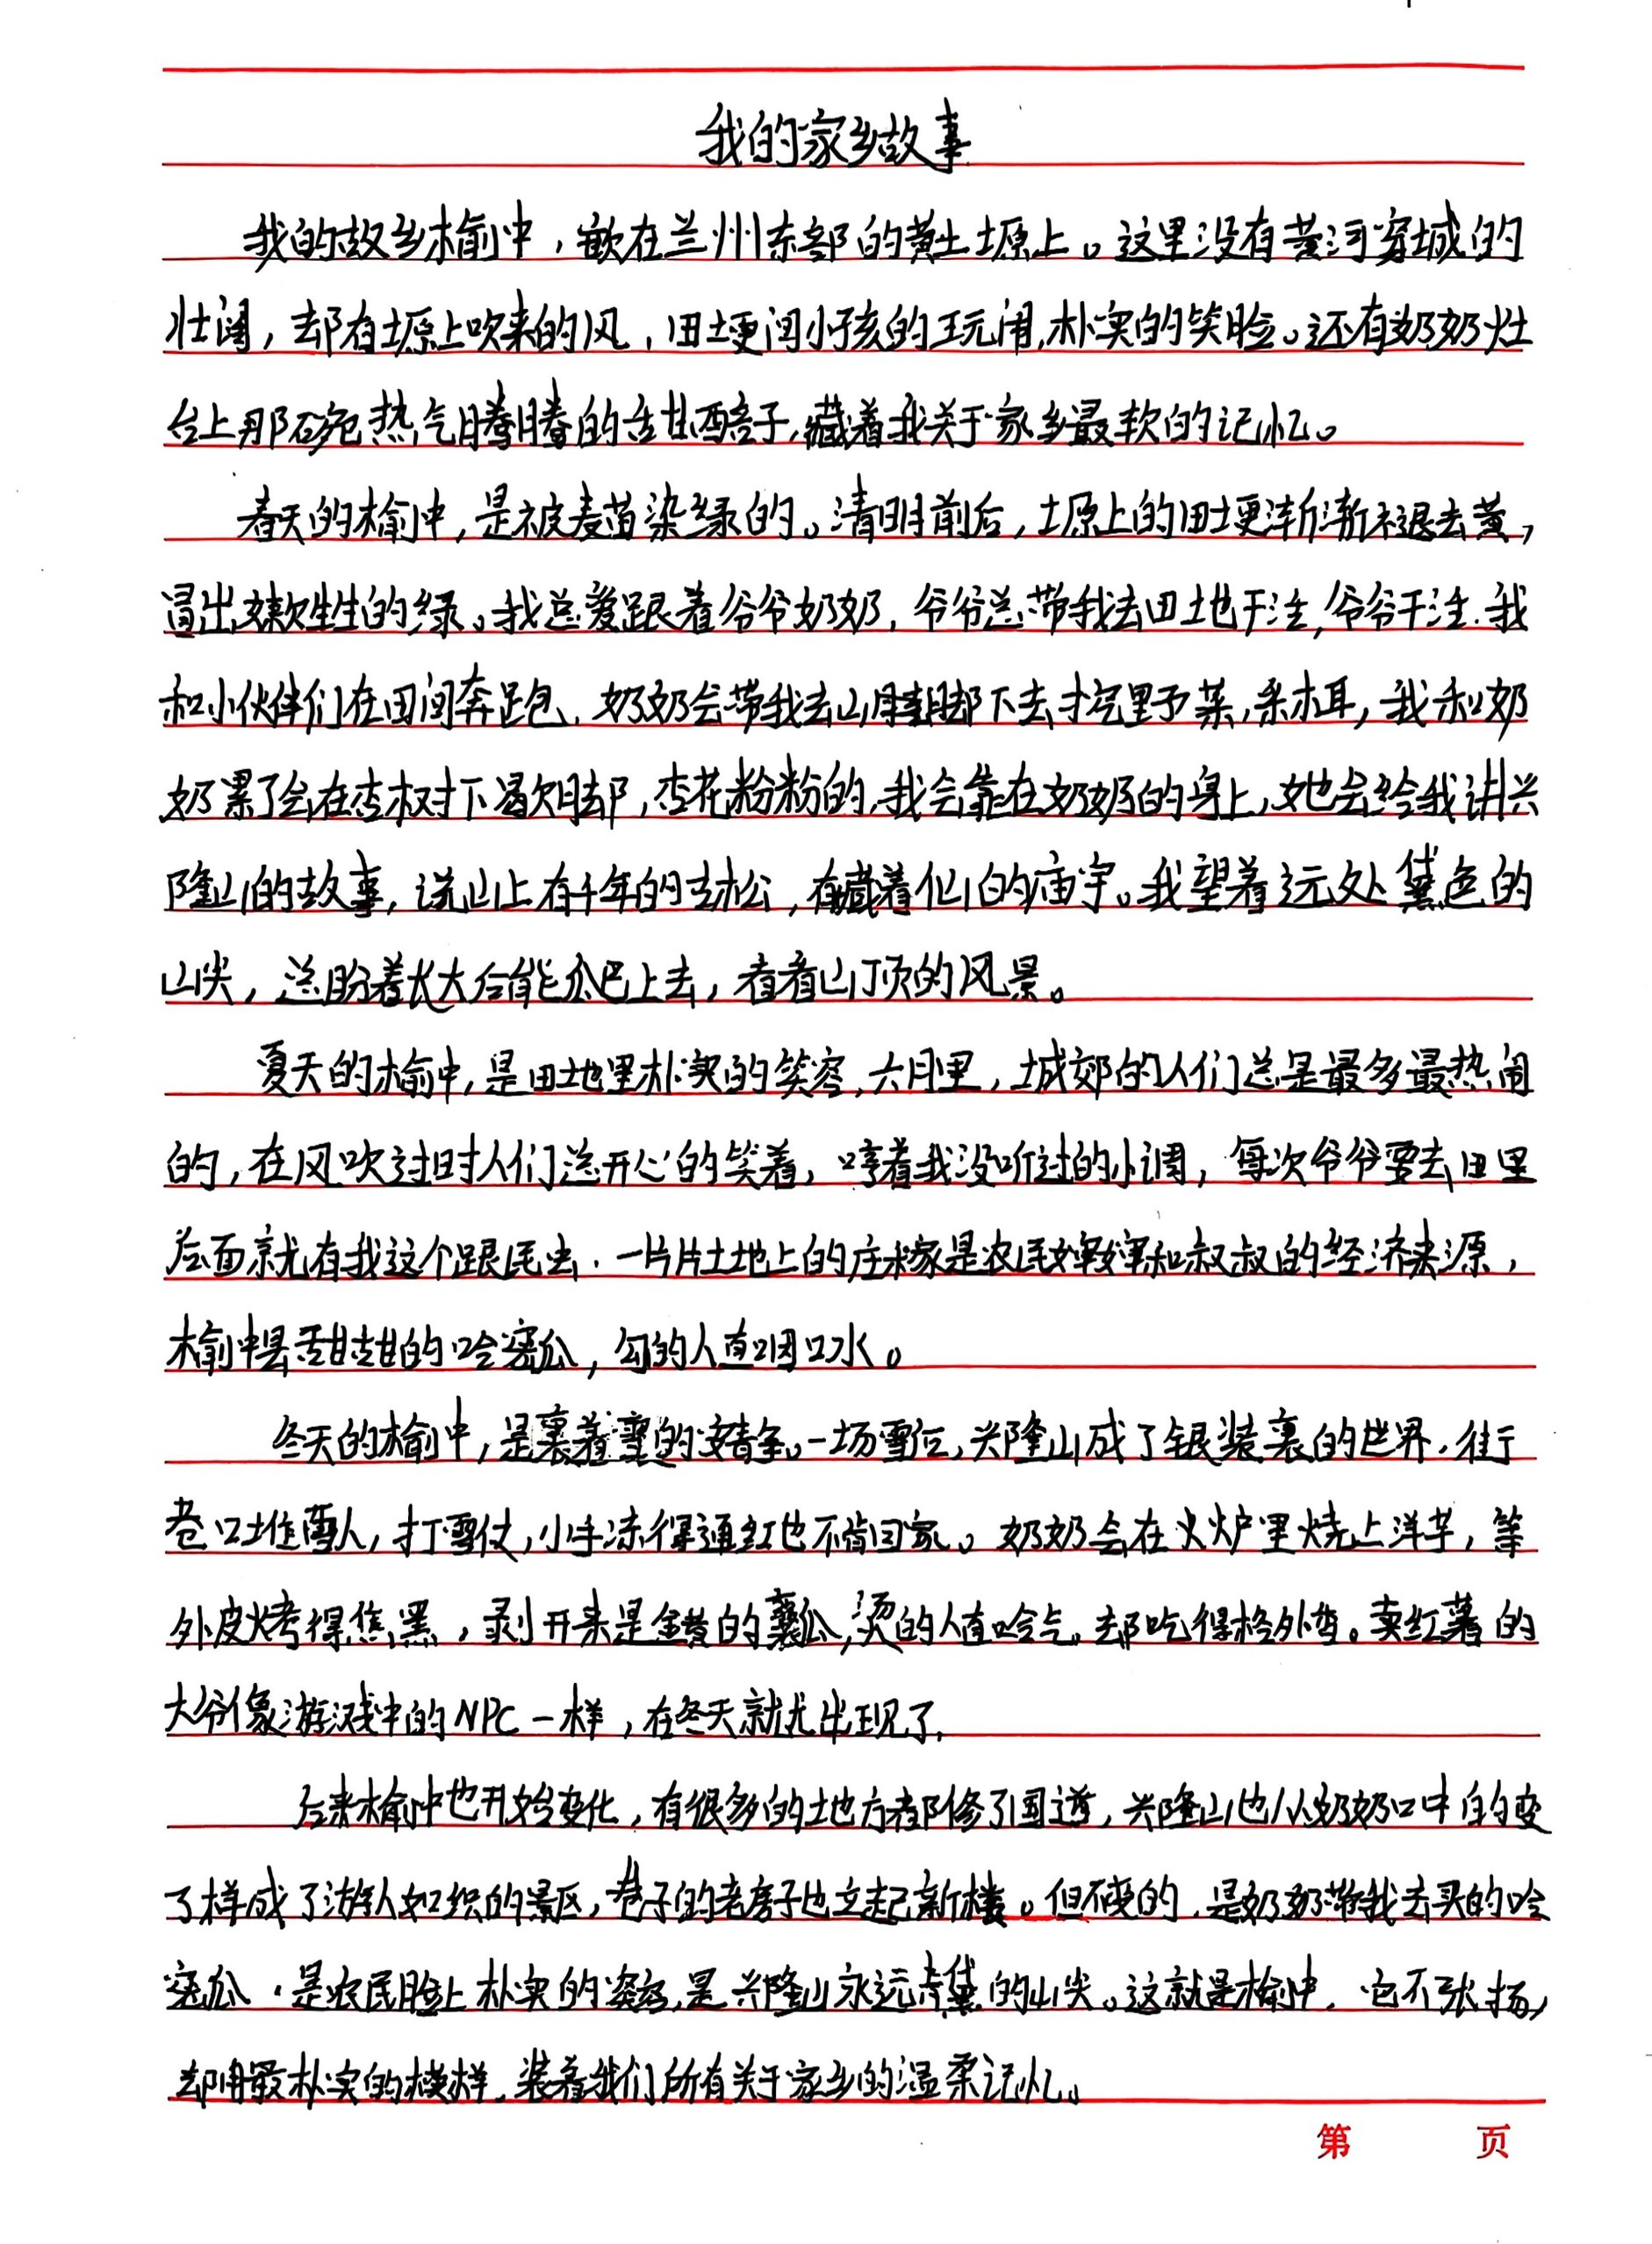 我的家乡故事
我的故乡榆中，嵌在兰州东部的黄土塬上。这里没有黄河穿城的
壮阔，却有塬上吹来的风，田埂间小孩的玩闹,朴实的笑脸。还有奶奶灶
台上那碗热气腾腾的甜醅子,藏着我关于家乡最软的记忆。
春天的榆中,是被麦苗染绿的。清明前后,塬上的田埂渐渐褪去黄,
冒出软生生的绿。我总爱跟着爷爷奶奶,爷爷总带我去田地干活,爷爷干活.我
和小伙伴们在田间奔跑.奶奶会带我去山脚下去挖野菜,采木耳,我和奶
奶累了会在杏树下歇脚,杏花粉粉的,我会靠在奶奶的身上,她会给我讲兴
隆山的故事,说山上有千年的古松,有藏着仙的庙宇。我望着远处黛色的
山尖,总盼着长大后能爬上去,看看山顶的风景。
夏天的榆中,是田地里朴实的笑容,六月里,城郊的人们总是最多最热闹
的,在风吹过时人们总开心的笑着,哼着我没听过的小调,每次爷爷要去田里
后面就有我这个跟屁虫.一片片土地上的庄稼是农民婶婶和叔叔的经济来源,
榆中县甜甜的哈密瓜,勾的人直咽口水。
冬天的榆中,是裹着雪的安静。一场雪后,兴隆山成了银装裹的世界.街
巷口堆雪人,打雪仗,小手冻得通红也不肯回家。奶奶会在火炉里烧上洋芋,等
外皮烤得焦黑,剥开来是金黄的瓤,烫的人直哈气,却吃得格外香。卖红薯的
大爷像游戏中的NPC一样,在冬天就出现了.
后来榆中也开始变化,有很多的地方都修了国道,兴隆山也从奶奶口中的变
了样成了游人如织的景区,巷子的老房子也立起新楼。但不变的,是奶奶带我去买的哈
密瓜.是农民脸上朴实的笑容,是兴隆山永远青黛的山尖。这就是榆中.它不张扬,
却用最朴实的模样.装着我们所有关于家乡的温柔记忆。
第 页